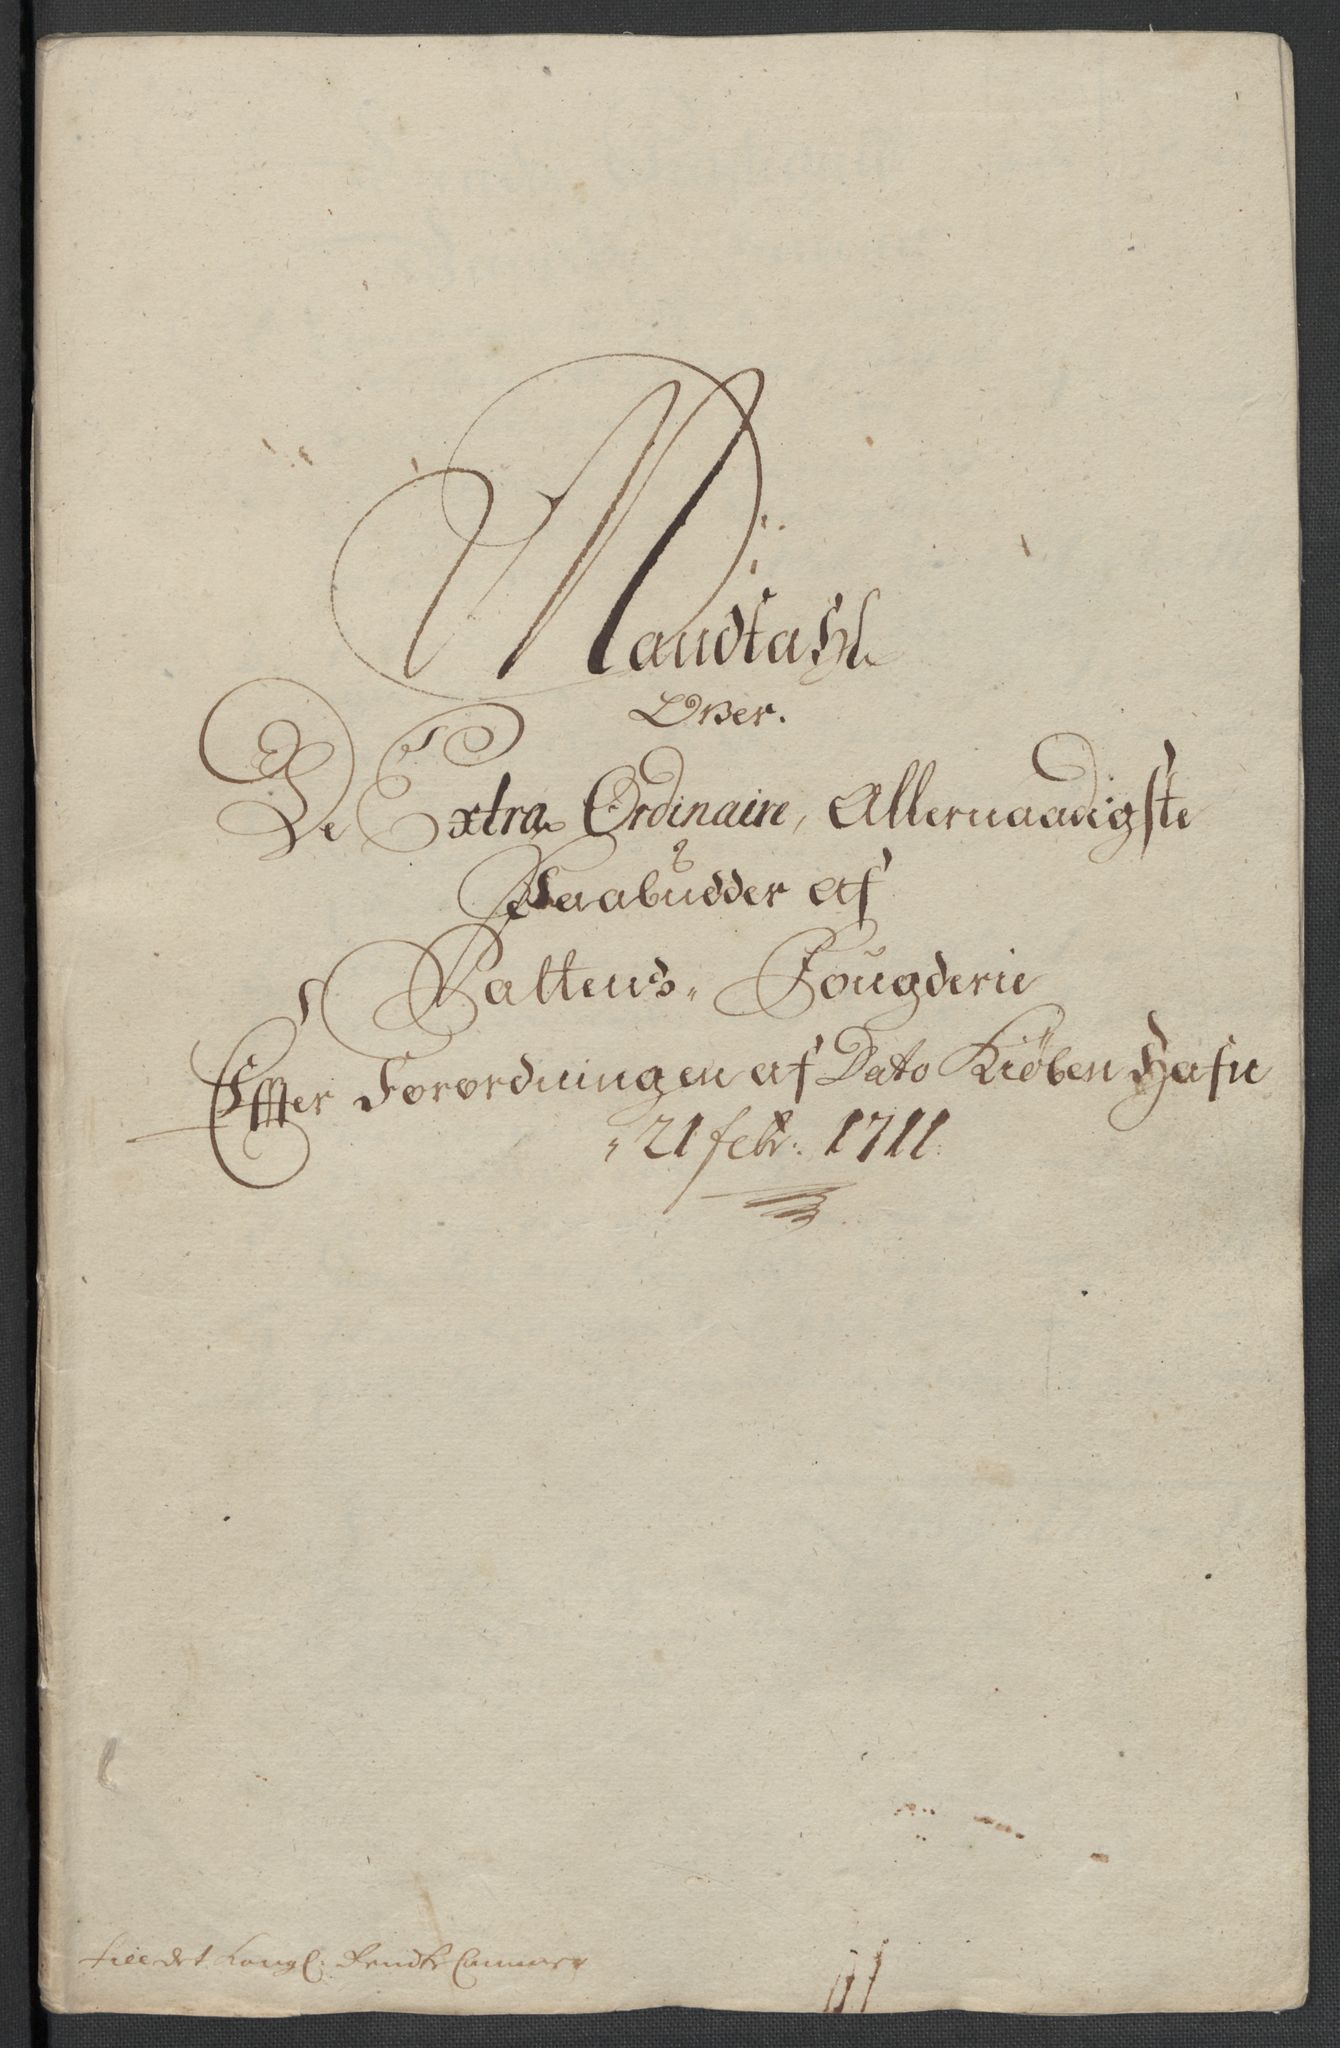 Mandtahl
Over.
De Extra Ordinaire, Allernaadigste
Paabudder af
Saltens Fougderie
Effter Forordningen af Dato Kiøbenhafn
21 febr. 1711
till det Kongl. Rendte Cammer